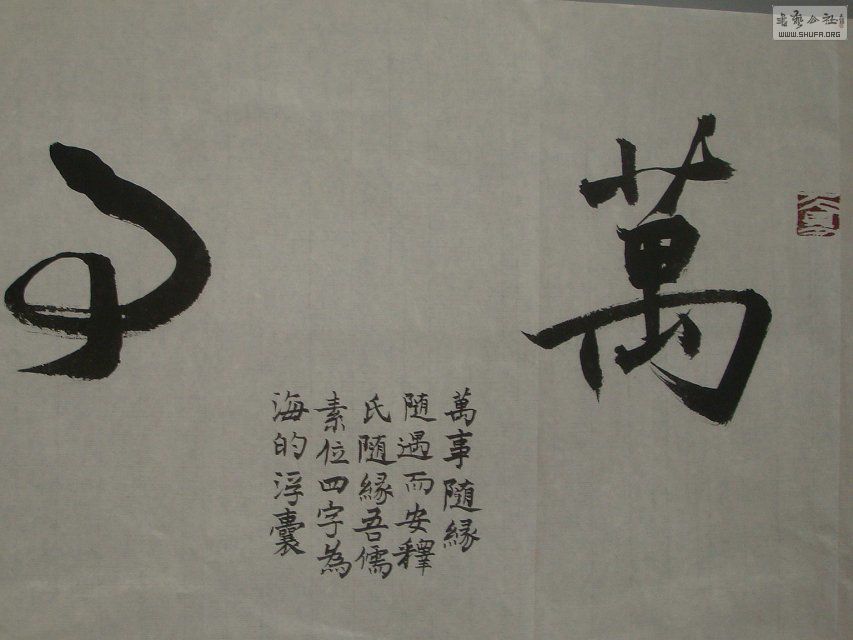 萬
事
萬事隨緣
隨遇而安釋
氏隨緣吾儒
素位四字為
海的浮囊
書藝公社
WWW.SHUFA.ORG